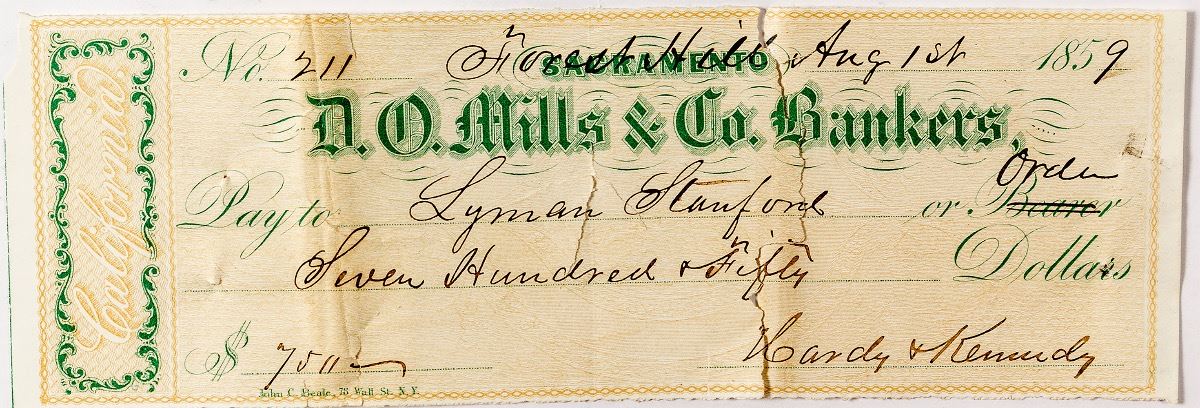 California
No. 211 Forest Hill Aug 1st 1859
SACRAMENTO
D. O. Mills & Co. Bankers,
Order
Pay to Lyman Stanford or Bearer
Seven Hundred & Fifty Dollars
$ 750
Hardy & Kennedy
John C. Beale, 73 Wall St. N.Y.